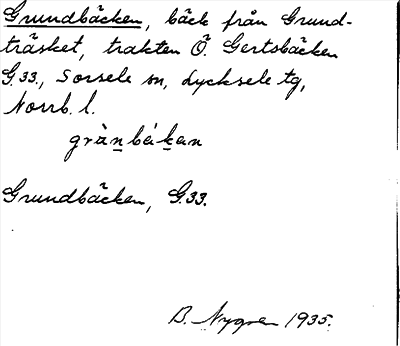 Grundbäcken, bäck från Grund-
träsket, trakten Ö. Gertsbäcken
G.33., Sorsele sn, Lycksele tg,
Norrb. l.
grànbákan
Grundbäcken, G.33.
B. Nygren 1935.